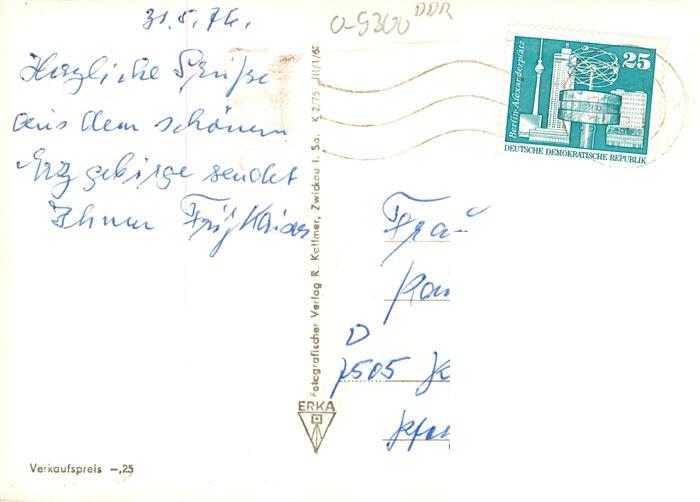 31.5.76.
Herzliche Grüße
aus dem schönen
Erzgebirge sendet
Ihnen
O-9300 DDR
Fotografischer Verlag R. Kallmer, Zwickau i. Sa. K 2/75 III/1/67
ERKA
Verkaufspreis -,25
Berlin-Alexanderplatz
25
DEUTSCHE DEMOKRATISCHE REPUBLIK
Frau
D
7505